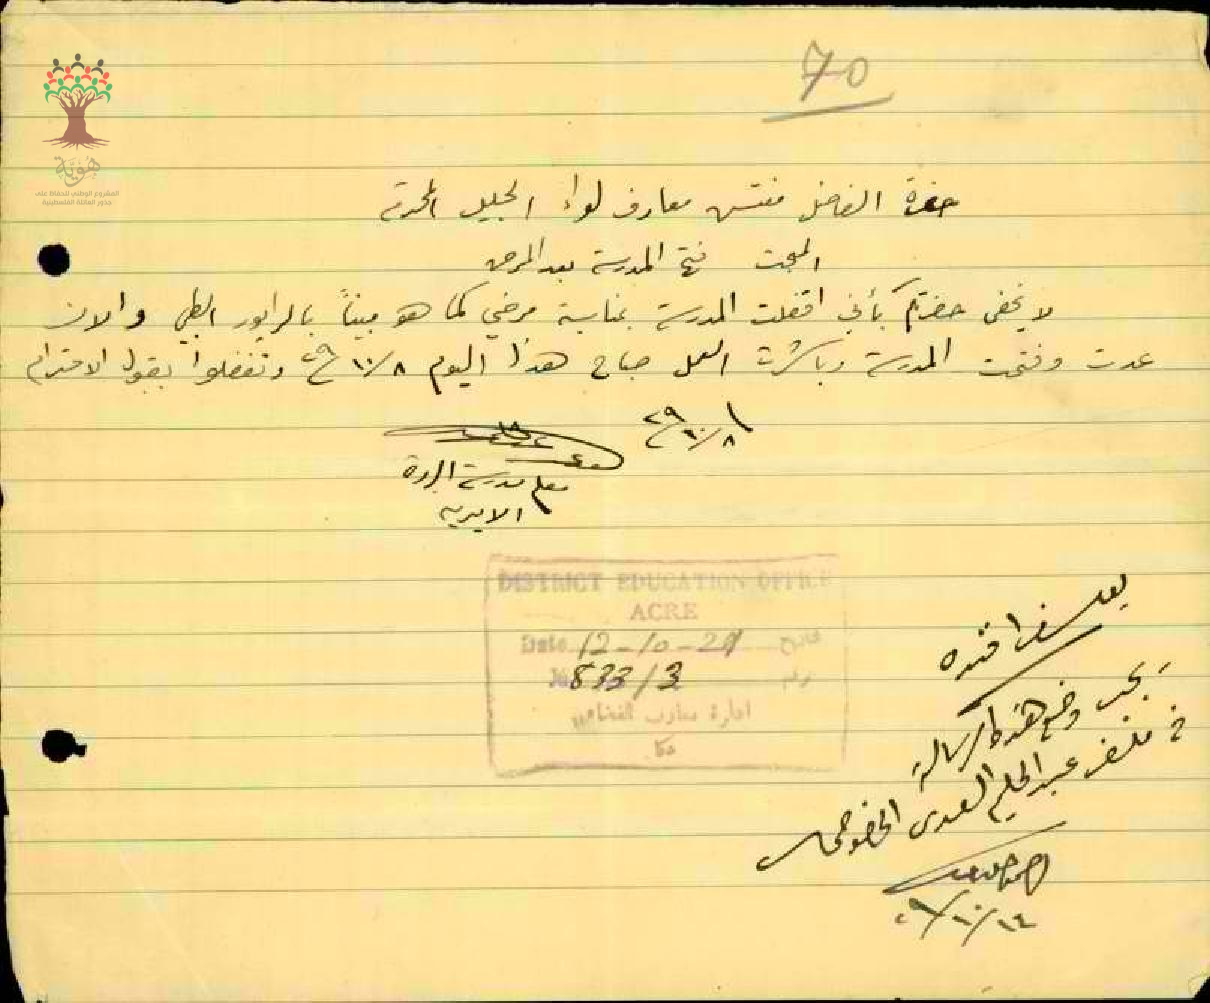 70
هُوِيَّة
المشروع الوطني للحفاظ على
جذور العائلة الفلسطينية
حضرة الفاضل مفتش معارف لواء الجليل المحترم
المبحث فتح المدرسة بعد المرض
لا يخفى حضرتكم بأني اقفلت المدرسة بمناسبة مرضي كما هو مبيناً بالرابور الطبي والان
عدت وفتحت المدرسة وباشرت العمل صباح هذا اليوم ١٠/٨ ٢٩ وتفضلوا بقبول الاحترام
٢٩ ١٠/٨
معلم مدرسة البروة
الاميرية
DISTRICT EDUCATION OFFICE
ACRE
Date 12-10-29 تاريخ
No 833/3 رقم
ادارة معارف القضاء
عكا
يجب وضع هذه الرسالة
في ملف عبد الحليم السعدي الخصوصي
٢٩/١٠/١٤